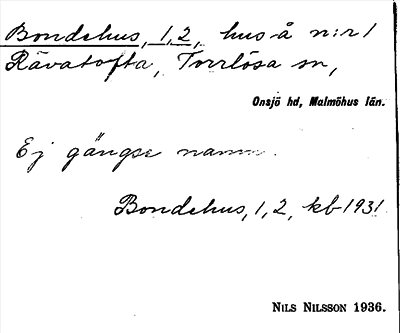 Bondehus, 1,2, hus å n:r 1
Rävatofta, Torrlösa sn,
Onsjö hd, Malmöhus län.
Ej gängse namn.
Bondehus, 1, 2, kb 1931
Nils Nilsson 1936.